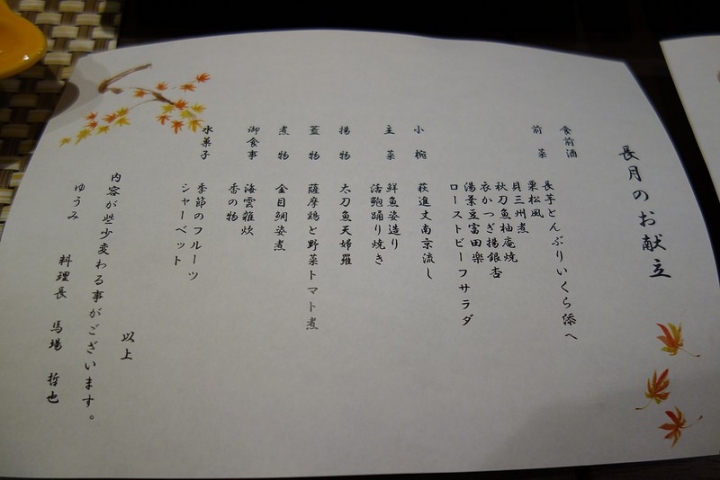 長月のお献立
食前酒
前菜 長芋とんぶりいくら添へ
栗松風
貝三州煮
秋刀魚柚庵焼
衣かつぎ揚銀杏
湯葉豆富田楽
ローストビーフサラダ
小椀 萩進丈南京流し
主菜 鮮魚姿造り
活鮑踊り焼き
揚物 太刀魚天婦羅
蓋物 薩摩鶏と野菜トマト煮
煮物 金目鯛姿煮
御食事 海雲雑炊
香の物
水菓子 季節のフルーツ
シャーベット
以上
内容が些少変わる事がございます。
ゆうみ 料理長 馬場 哲也